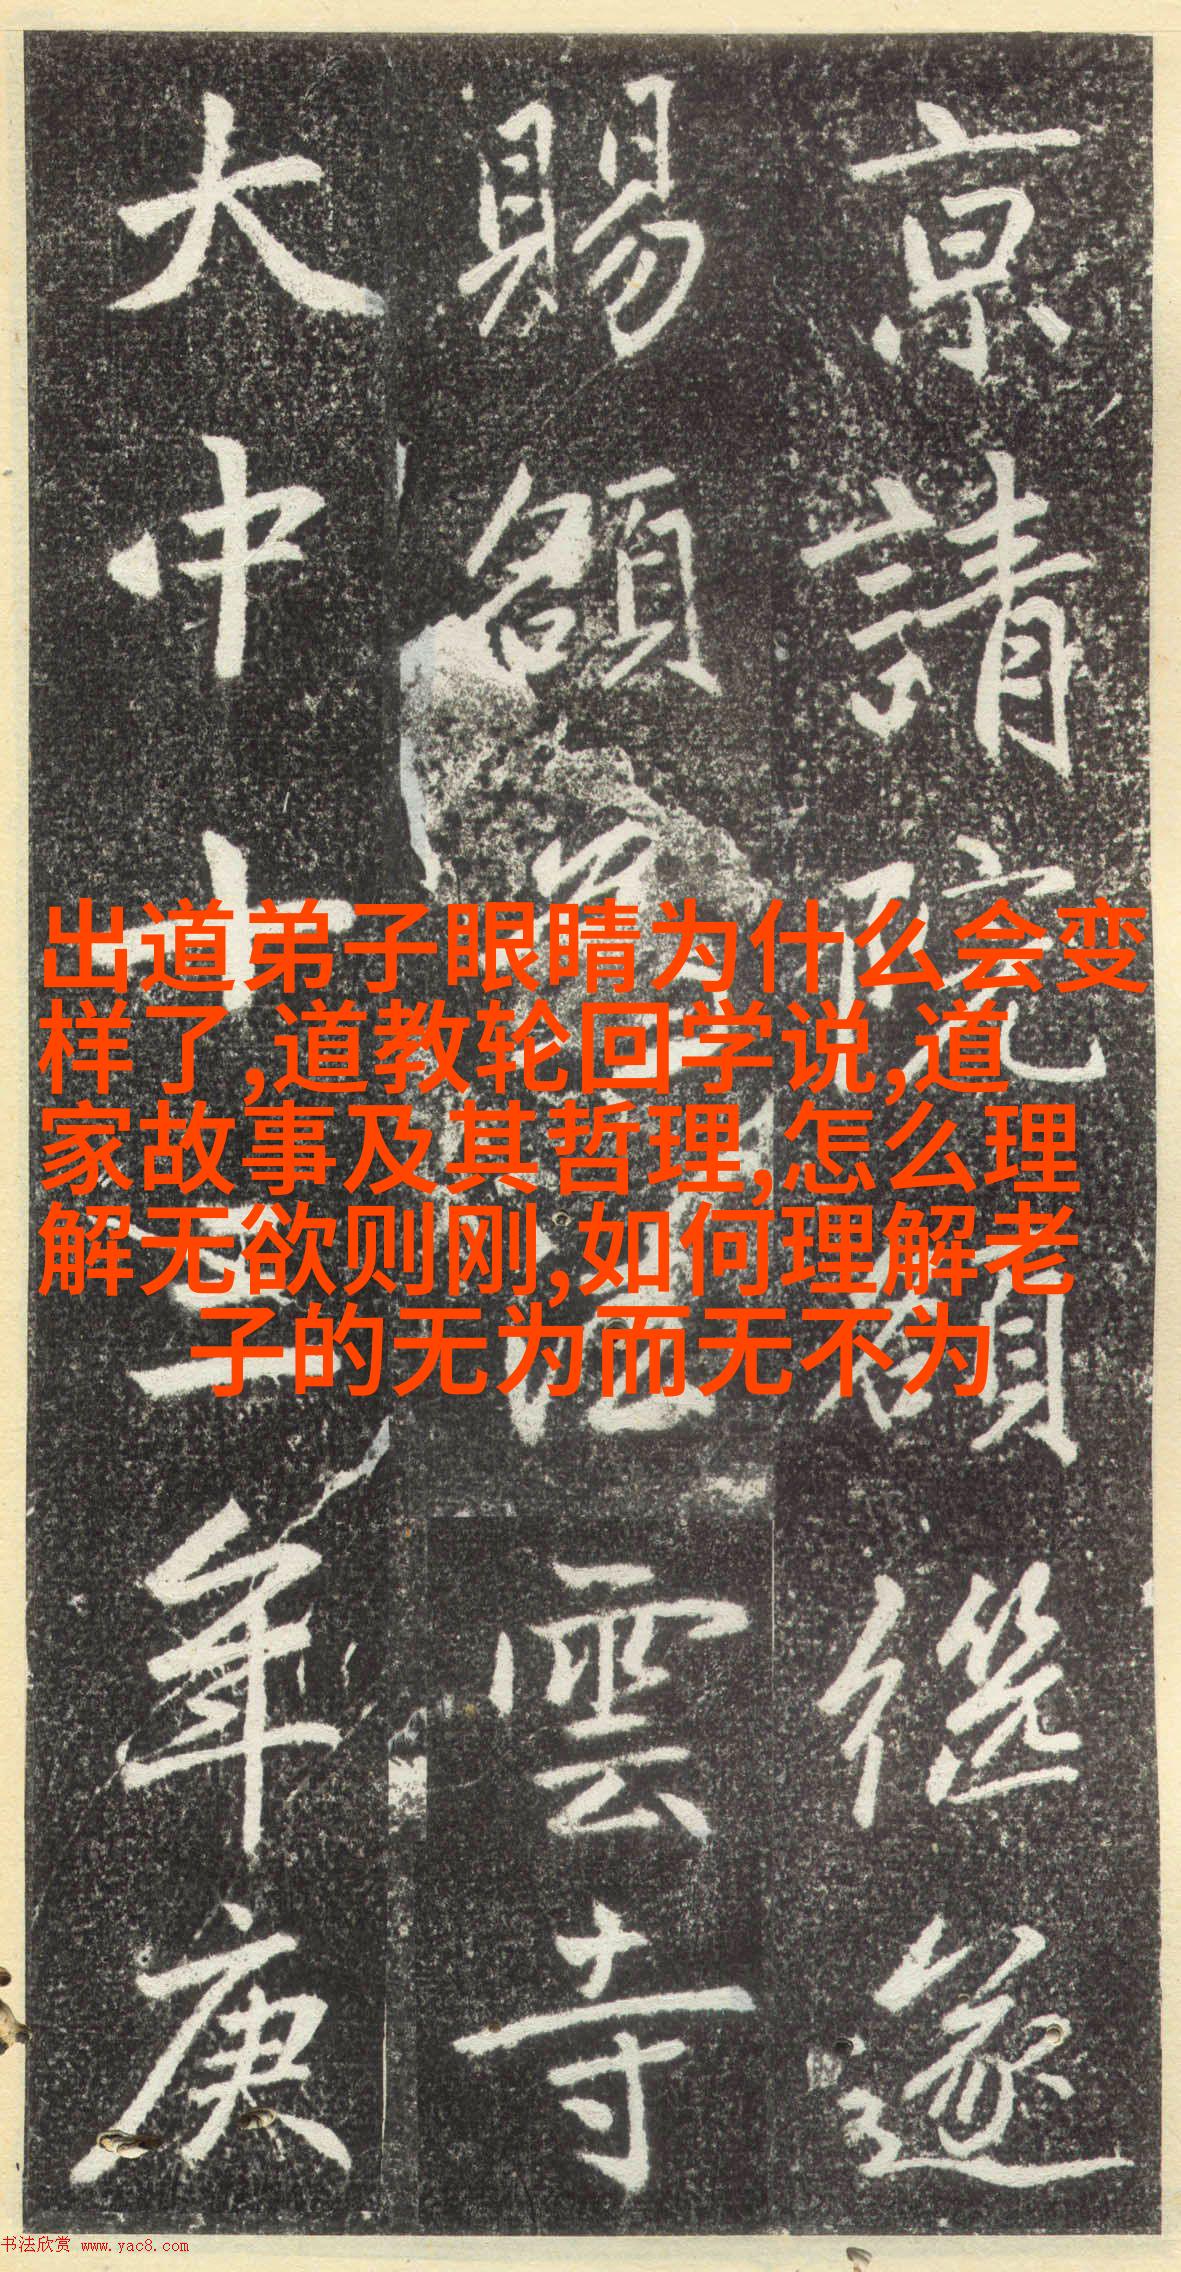 京請院額継遂
賜額雲寺
大中十三年庚
出道弟子眼睛为什么会变
样了,道教轮回学说,道
家故事及其哲理,怎么理
解无欲则刚,如何理解老
子的无为而无不为
书法欣赏 www.yac8.com